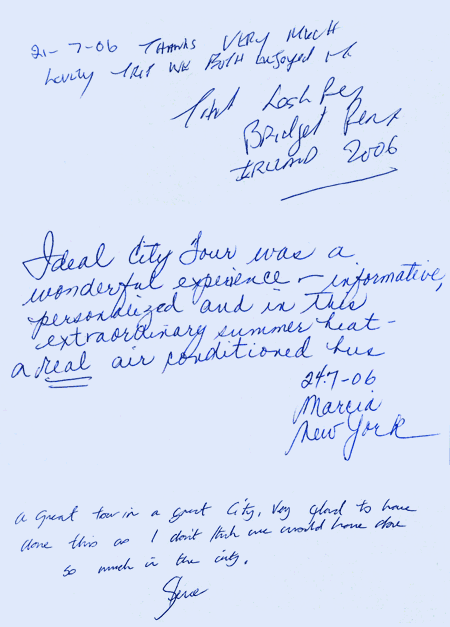 21-7-06 THANKS VERY MUCH
Lovely TRIP WE BOTH Enjoyed it
Bridget
IRELAND 2006
Ideal City Tour was a
wonderful experience - informative,
personalized and in this
extraordinary summer heat -
a real air conditioned bus
24.7-06
Marcia
New York
A Great tour in a great City. Very glad to have
done this as I don't think we would have done
so much in the city.
Steve